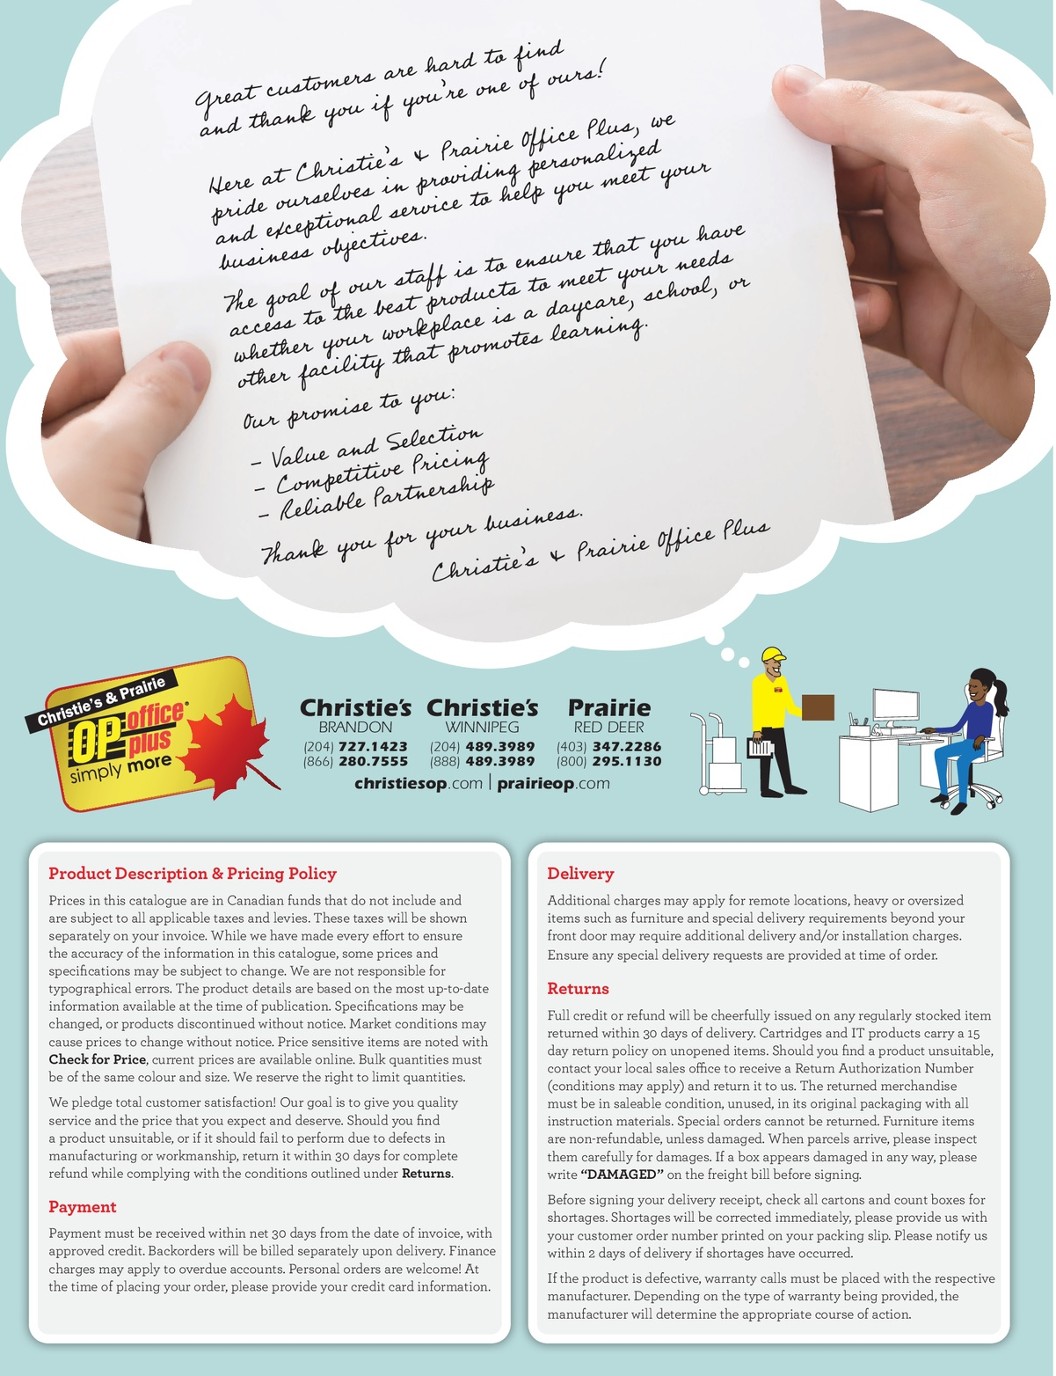 Great customers are hard to find
and thank you if you're one of ours!
Here at Christie's & Prairie Office Plus, we
pride ourselves in providing personalized
and exceptional service to help you meet your
business objectives.
The goal of our staff is to ensure that you have
access to the best products to meet your needs
whether your workplace is a daycare, school, or
other facility that promotes learning.
Our promise to you:
- Value and Selection
- Competitive Pricing
- Reliable Partnership
Thank you for your business.
Christie's & Prairie Office Plus
Christie's & Prairie
OP office®
plus
simply more
Christie's
BRANDON
(204) 727.1423
(866) 280.7555
Christie's
WINNIPEG
(204) 489.3989
(888) 489.3989
Prairie
RED DEER
(403) 347.2286
(800) 295.1130
christiesop.com | prairieop.com
Product Description & Pricing Policy
Prices in this catalogue are in Canadian funds that do not include and
are subject to all applicable taxes and levies. These taxes will be shown
separately on your invoice. While we have made every effort to ensure
the accuracy of the information in this catalogue, some prices and
specifications may be subject to change. We are not responsible for
typographical errors. The product details are based on the most up-to-date
information available at the time of publication. Specifications may be
changed, or products discontinued without notice. Market conditions may
cause prices to change without notice. Price sensitive items are noted with
Check for Price, current prices are available online. Bulk quantities must
be of the same colour and size. We reserve the right to limit quantities.
We pledge total customer satisfaction! Our goal is to give you quality
service and the price that you expect and deserve. Should you find
a product unsuitable, or if it should fail to perform due to defects in
manufacturing or workmanship, return it within 30 days for complete
refund while complying with the conditions outlined under Returns.
Payment
Payment must be received within net 30 days from the date of invoice, with
approved credit. Backorders will be billed separately upon delivery. Finance
charges may apply to overdue accounts. Personal orders are welcome! At
the time of placing your order, please provide your credit card information.
Delivery
Additional charges may apply for remote locations, heavy or oversized
items such as furniture and special delivery requirements beyond your
front door may require additional delivery and/or installation charges.
Ensure any special delivery requests are provided at time of order.
Returns
Full credit or refund will be cheerfully issued on any regularly stocked item
returned within 30 days of delivery. Cartridges and IT products carry a 15
day return policy on unopened items. Should you find a product unsuitable,
contact your local sales office to receive a Return Authorization Number
(conditions may apply) and return it to us. The returned merchandise
must be in saleable condition, unused, in its original packaging with all
instruction materials. Special orders cannot be returned. Furniture items
are non-refundable, unless damaged. When parcels arrive, please inspect
them carefully for damages. If a box appears damaged in any way, please
write "DAMAGED" on the freight bill before signing.
Before signing your delivery receipt, check all cartons and count boxes for
shortages. Shortages will be corrected immediately, please provide us with
your customer order number printed on your packing slip. Please notify us
within 2 days of delivery if shortages have occurred.
If the product is defective, warranty calls must be placed with the respective
manufacturer. Depending on the type of warranty being provided, the
manufacturer will determine the appropriate course of action.